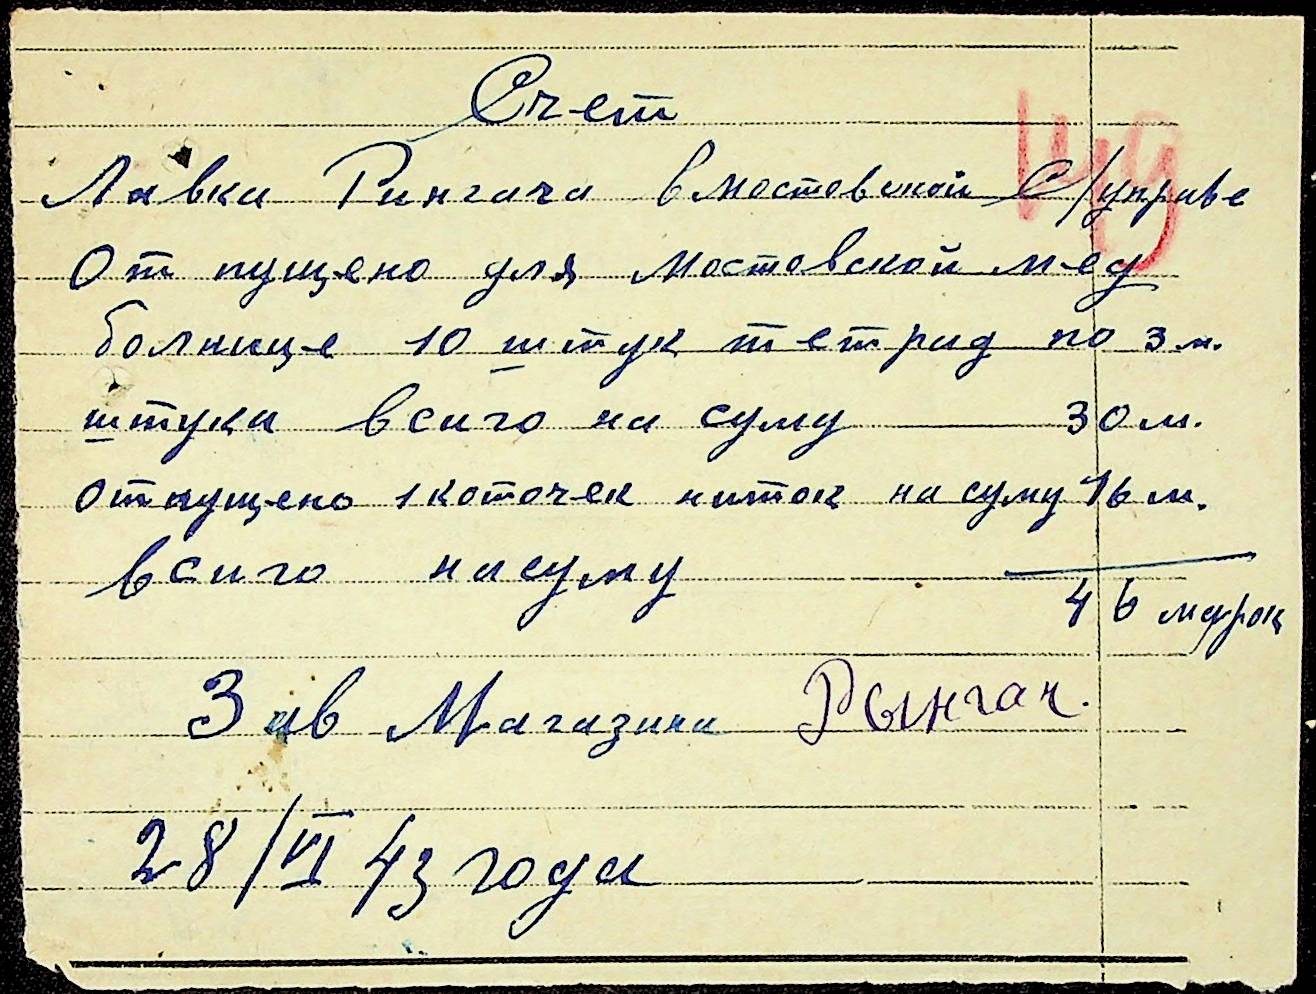 Счет
Лавка Рингача в мостовской С/управе
От пущено для мостовской мед
болнице 10 штук тетрад по 3 м.
штука всиго на суму 30 м.
отпущено 1 коточек ниток на суму 16 м.
всиго на суму
46 марок
Зав Магазина Рынгач.
28/VI 43 года